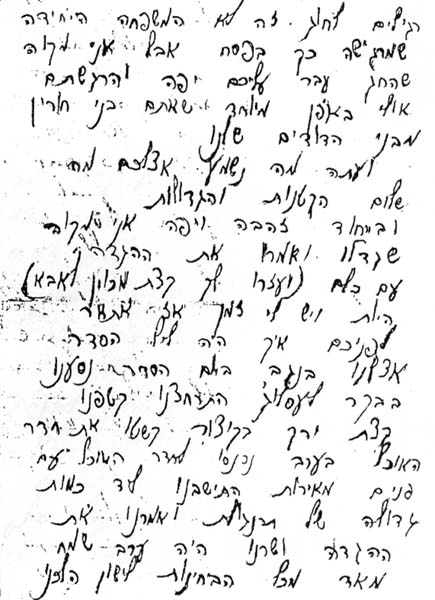 רגילים לחוג. זה לא המשפחה היחידה
שמרגישה כך בפסח אבל אני מקוה
שהחג עבר עליכם יפה והרגשתם
אולי באופן מיוחד שאתם בני חורין
מבני הדודים שלנו
ועתה מה נשמע אצלכם מה
שלום הקטנות והגדולות
ובייחוד זהבה ויפה אני מקוה
שגדלו ואמרו את ההגדה
עם כלם (ועזרו לך קצת מכוון לאבא)
היות ויש לי זמן אז אתאר
לפניכם איך היה ליל הסדר
אצלנו בנגב ביום הסדר נסענו
בבקר לעסלוג התרחצנו קטפנו
קצת ירק בקיצור קשטו את חדר
האוכל בערב נכנסנו לחדר האוכל עם
פנים מאירות התישבנו ליד כמות
גדולה של תרנגולת ואמרנו את
ההגדה ושרנו היה ערב שמח
מאד מכל הבחינות לישון הלכנו